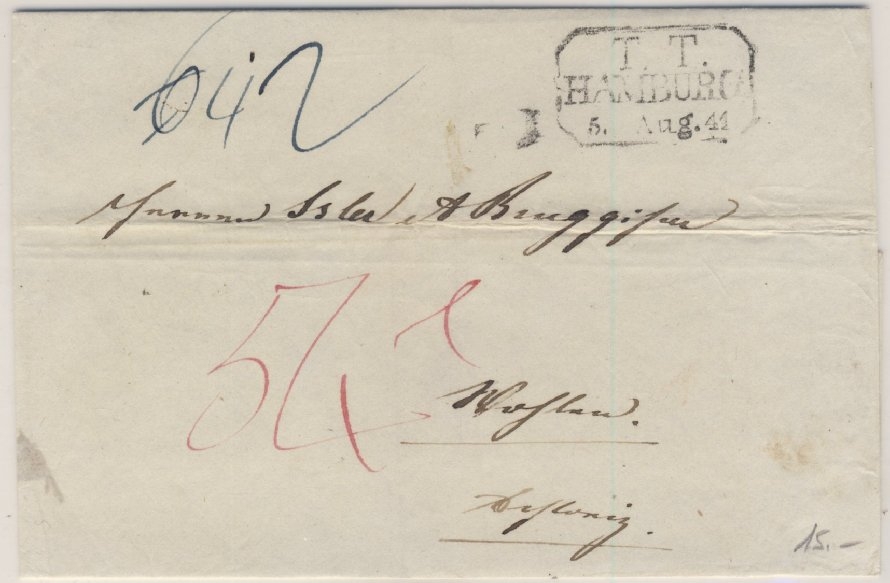 642
T. T.
HAMBURG
5. Aug. 41
Herren Isler & Bruggisser
54 x
Wohlen.
Schweiz.
15.–